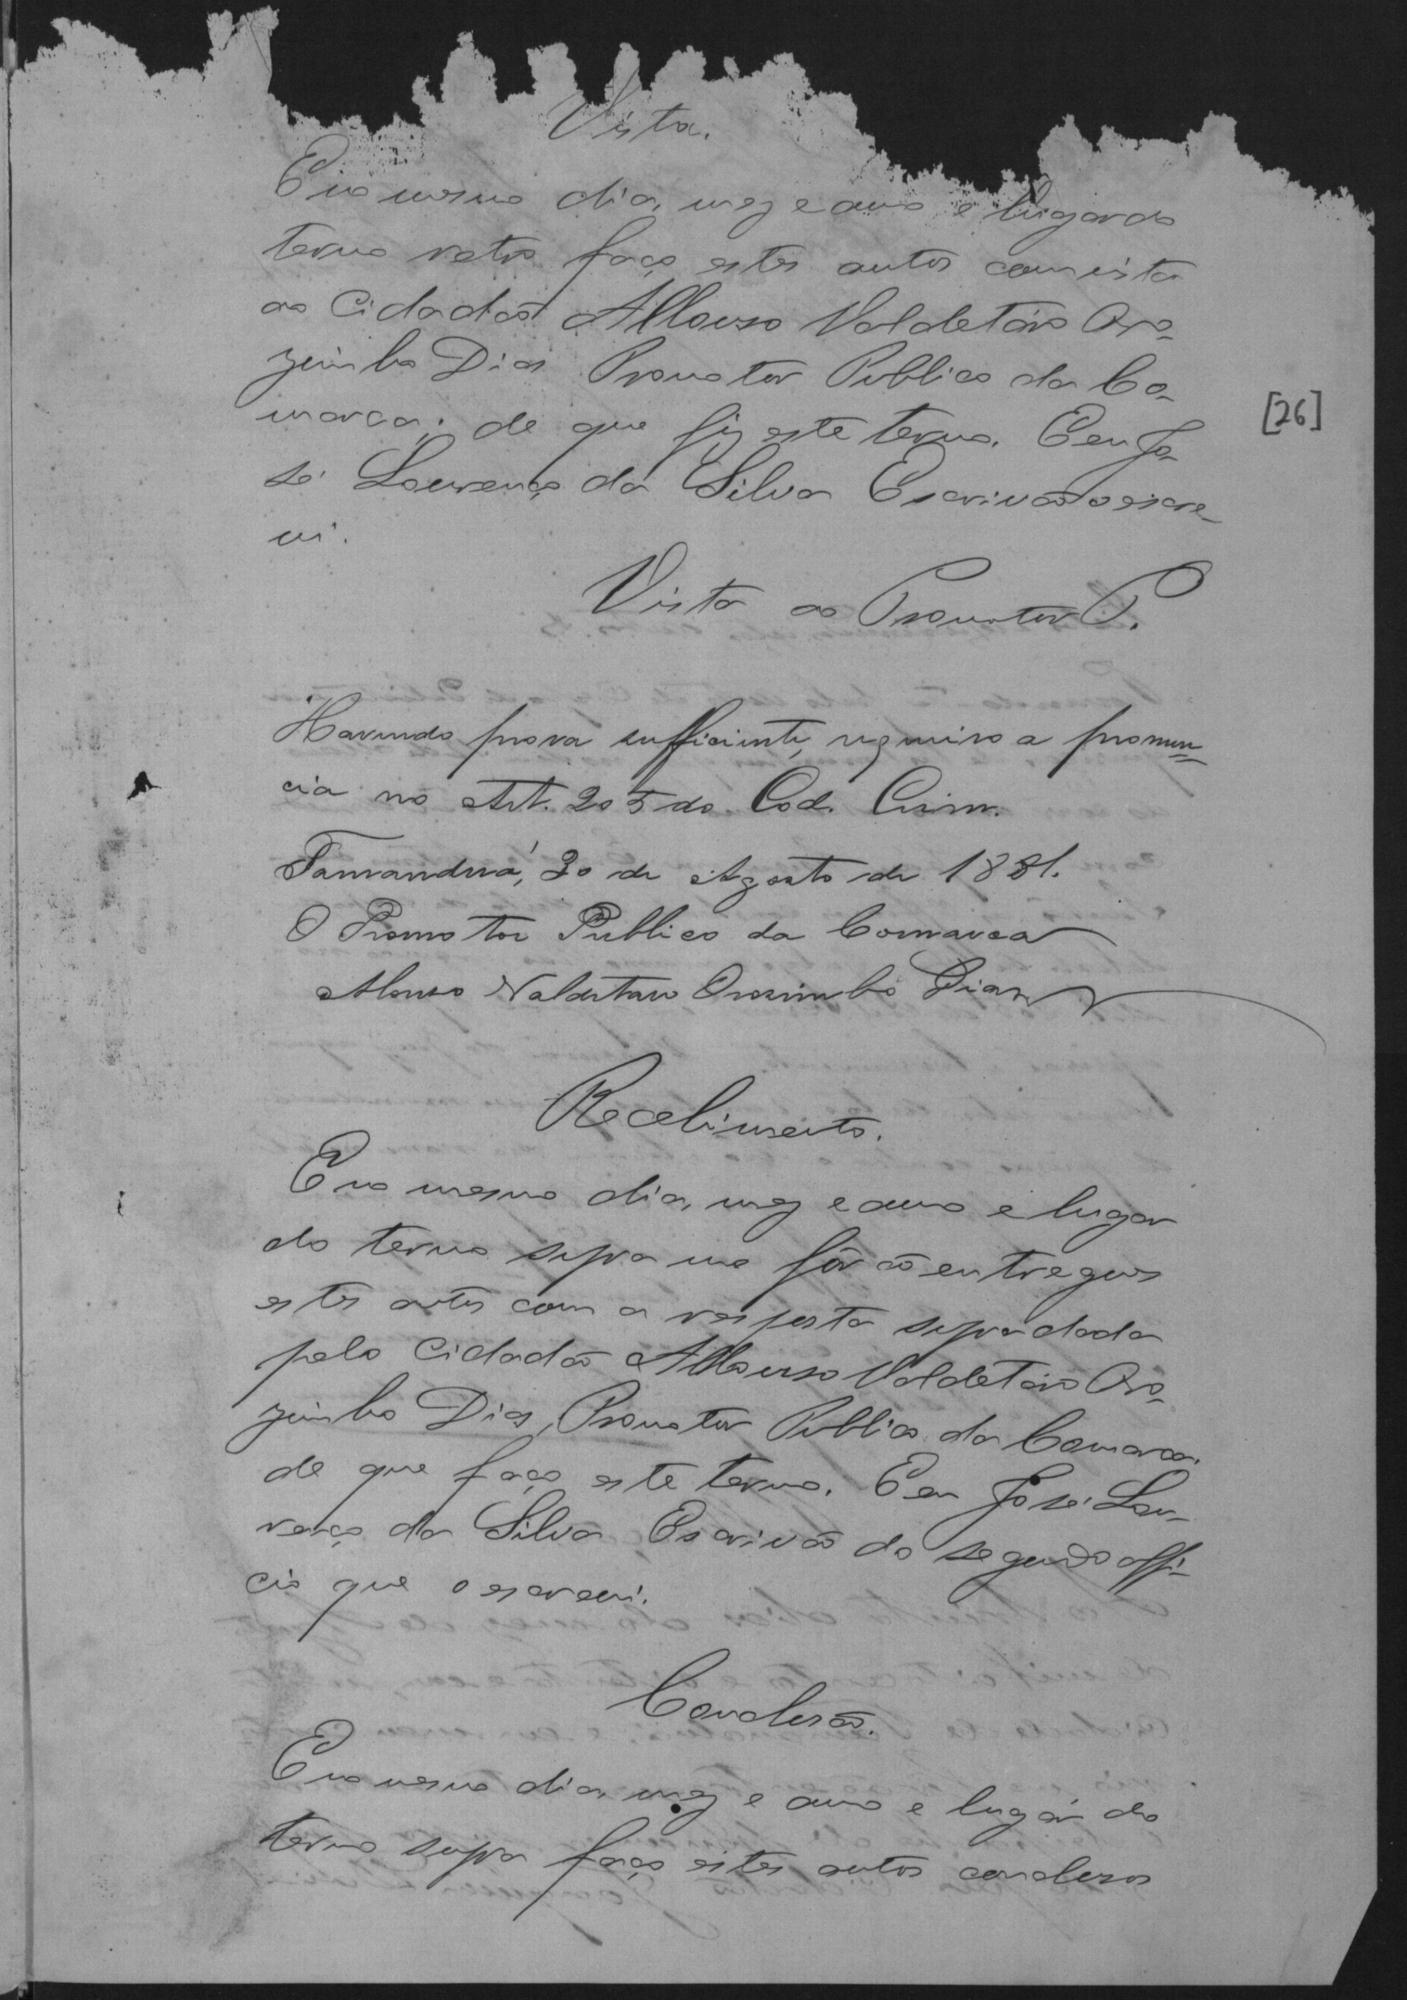 Vista.
E no mesmo dia, mez e anno e lugar do
termo retro faço estes autos com vista
ao Cidadão Affonso Valdetáro Oro-
zimbo Dias Promotor Publico da Co-
marca; de que fiz este termo. E eu Jo-
sé Lourenço da Silva Escrivão o escre-
vi.
Vista ao Promotor P.
[26]
Havendo prova sufficiente, requeiro a pronun-
cia no Art. 205 do Cod. Crim.
Tamanduá, 30 de Agosto de 1881.
O Promotor Publico da Comarca
Afonso Valdetaro Orosimbo Dias
Recebimento.
E no mesmo dia, mez e anno e lugar
do termo supra me fôrão entregues
estes autos com a resposta supra dada
pelo Cidadão Affonso Valdetáro Oro-
zimbo Dias, Promotor Publico da Comarca.
de que faço este termo. E eu José Lou-
renço da Silva Escrivão do segundo offi-
cio que o escrevi.
Conclusão.
E no mesmo dia, mez e anno e lugár do
termo supra faço estes autos conclusos